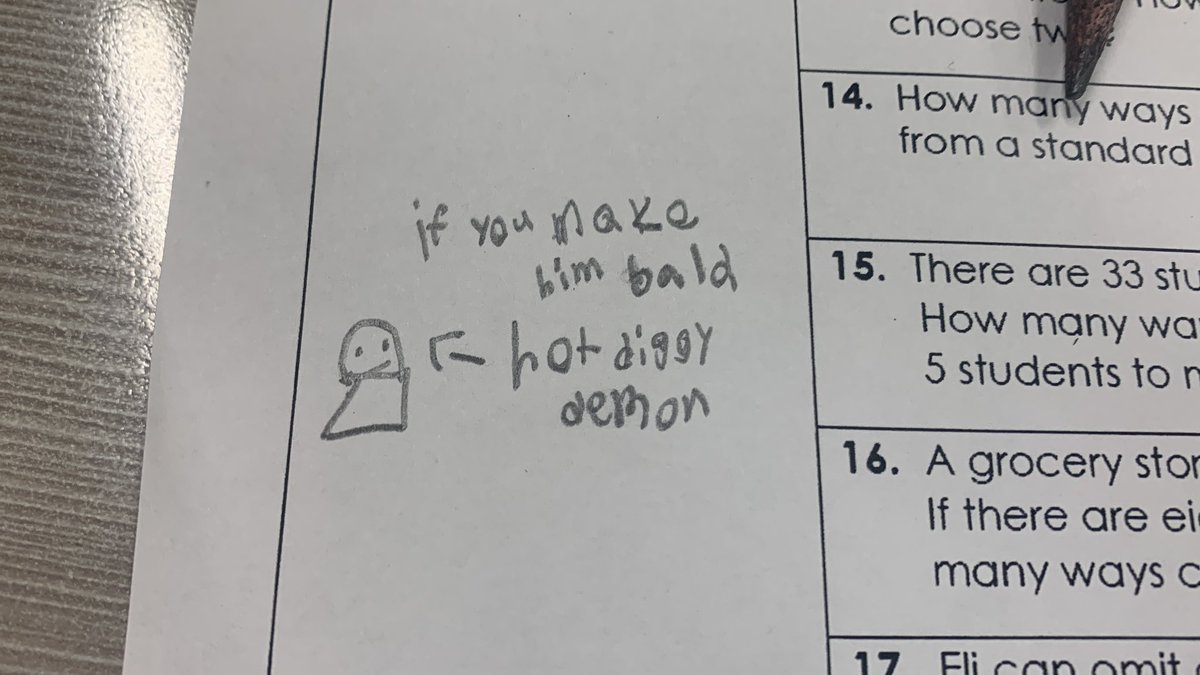 if you make
him bald
hot diggy
demon
choose
14. How many ways
from a standard
15. There are 33 stu
How many wa
5 students to
16. A grocery stor
If there are ei
many ways
17. Eli can omit